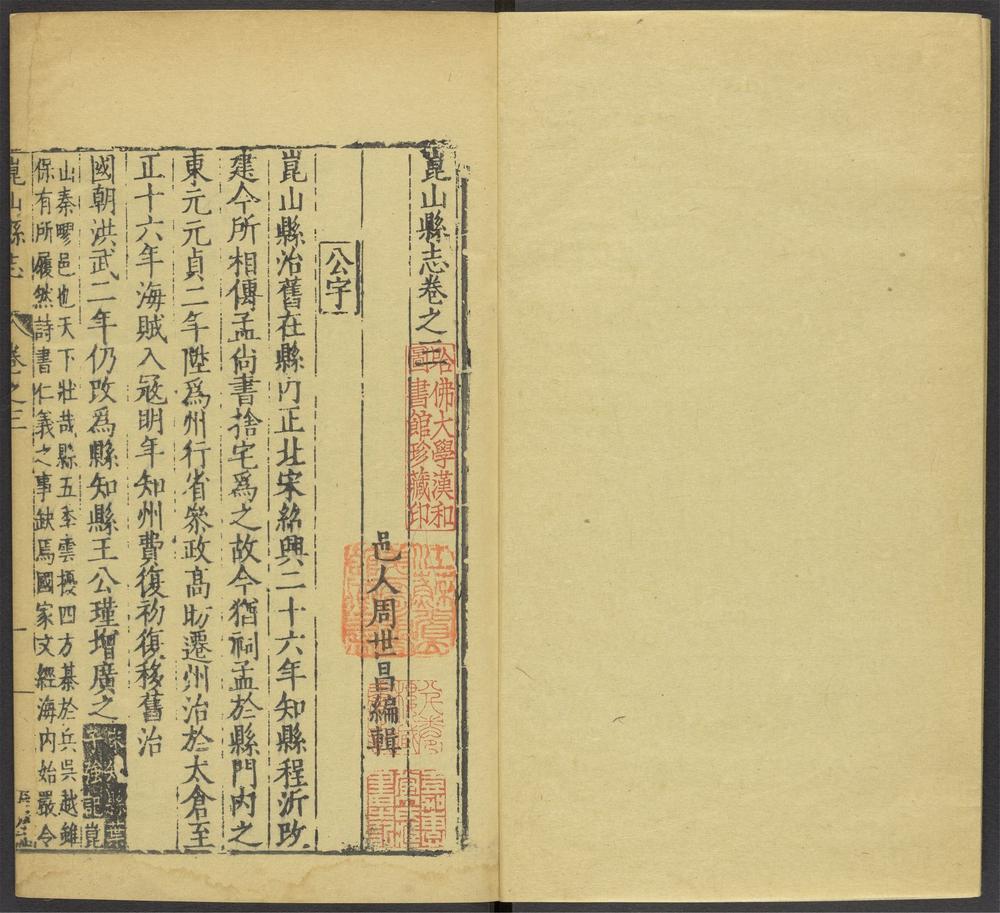 崑山縣志卷之三
哈佛大學漢和
圖書館珍藏印
邑人周世昌編輯
公宇
崑山縣治舊在縣內正北宋紹興二十六年知縣程沂改
建今所相傳孟尚書捨宅爲之故今猶祠孟於縣門內之
東元元貞二年陞爲州行省叅政髙昉遷州治於太倉至
正十六年海賊入冦明年知州費復初復移舊治
國朝洪武二年仍改爲縣知縣王公瑾增廣之
崑
山秦疁邑也天下壯哉縣五季雲擾四方棊於兵吳越雖
保有所履然詩書仁義之事缺焉國家文經海內始嚴令
崑山縣志
卷之三
一